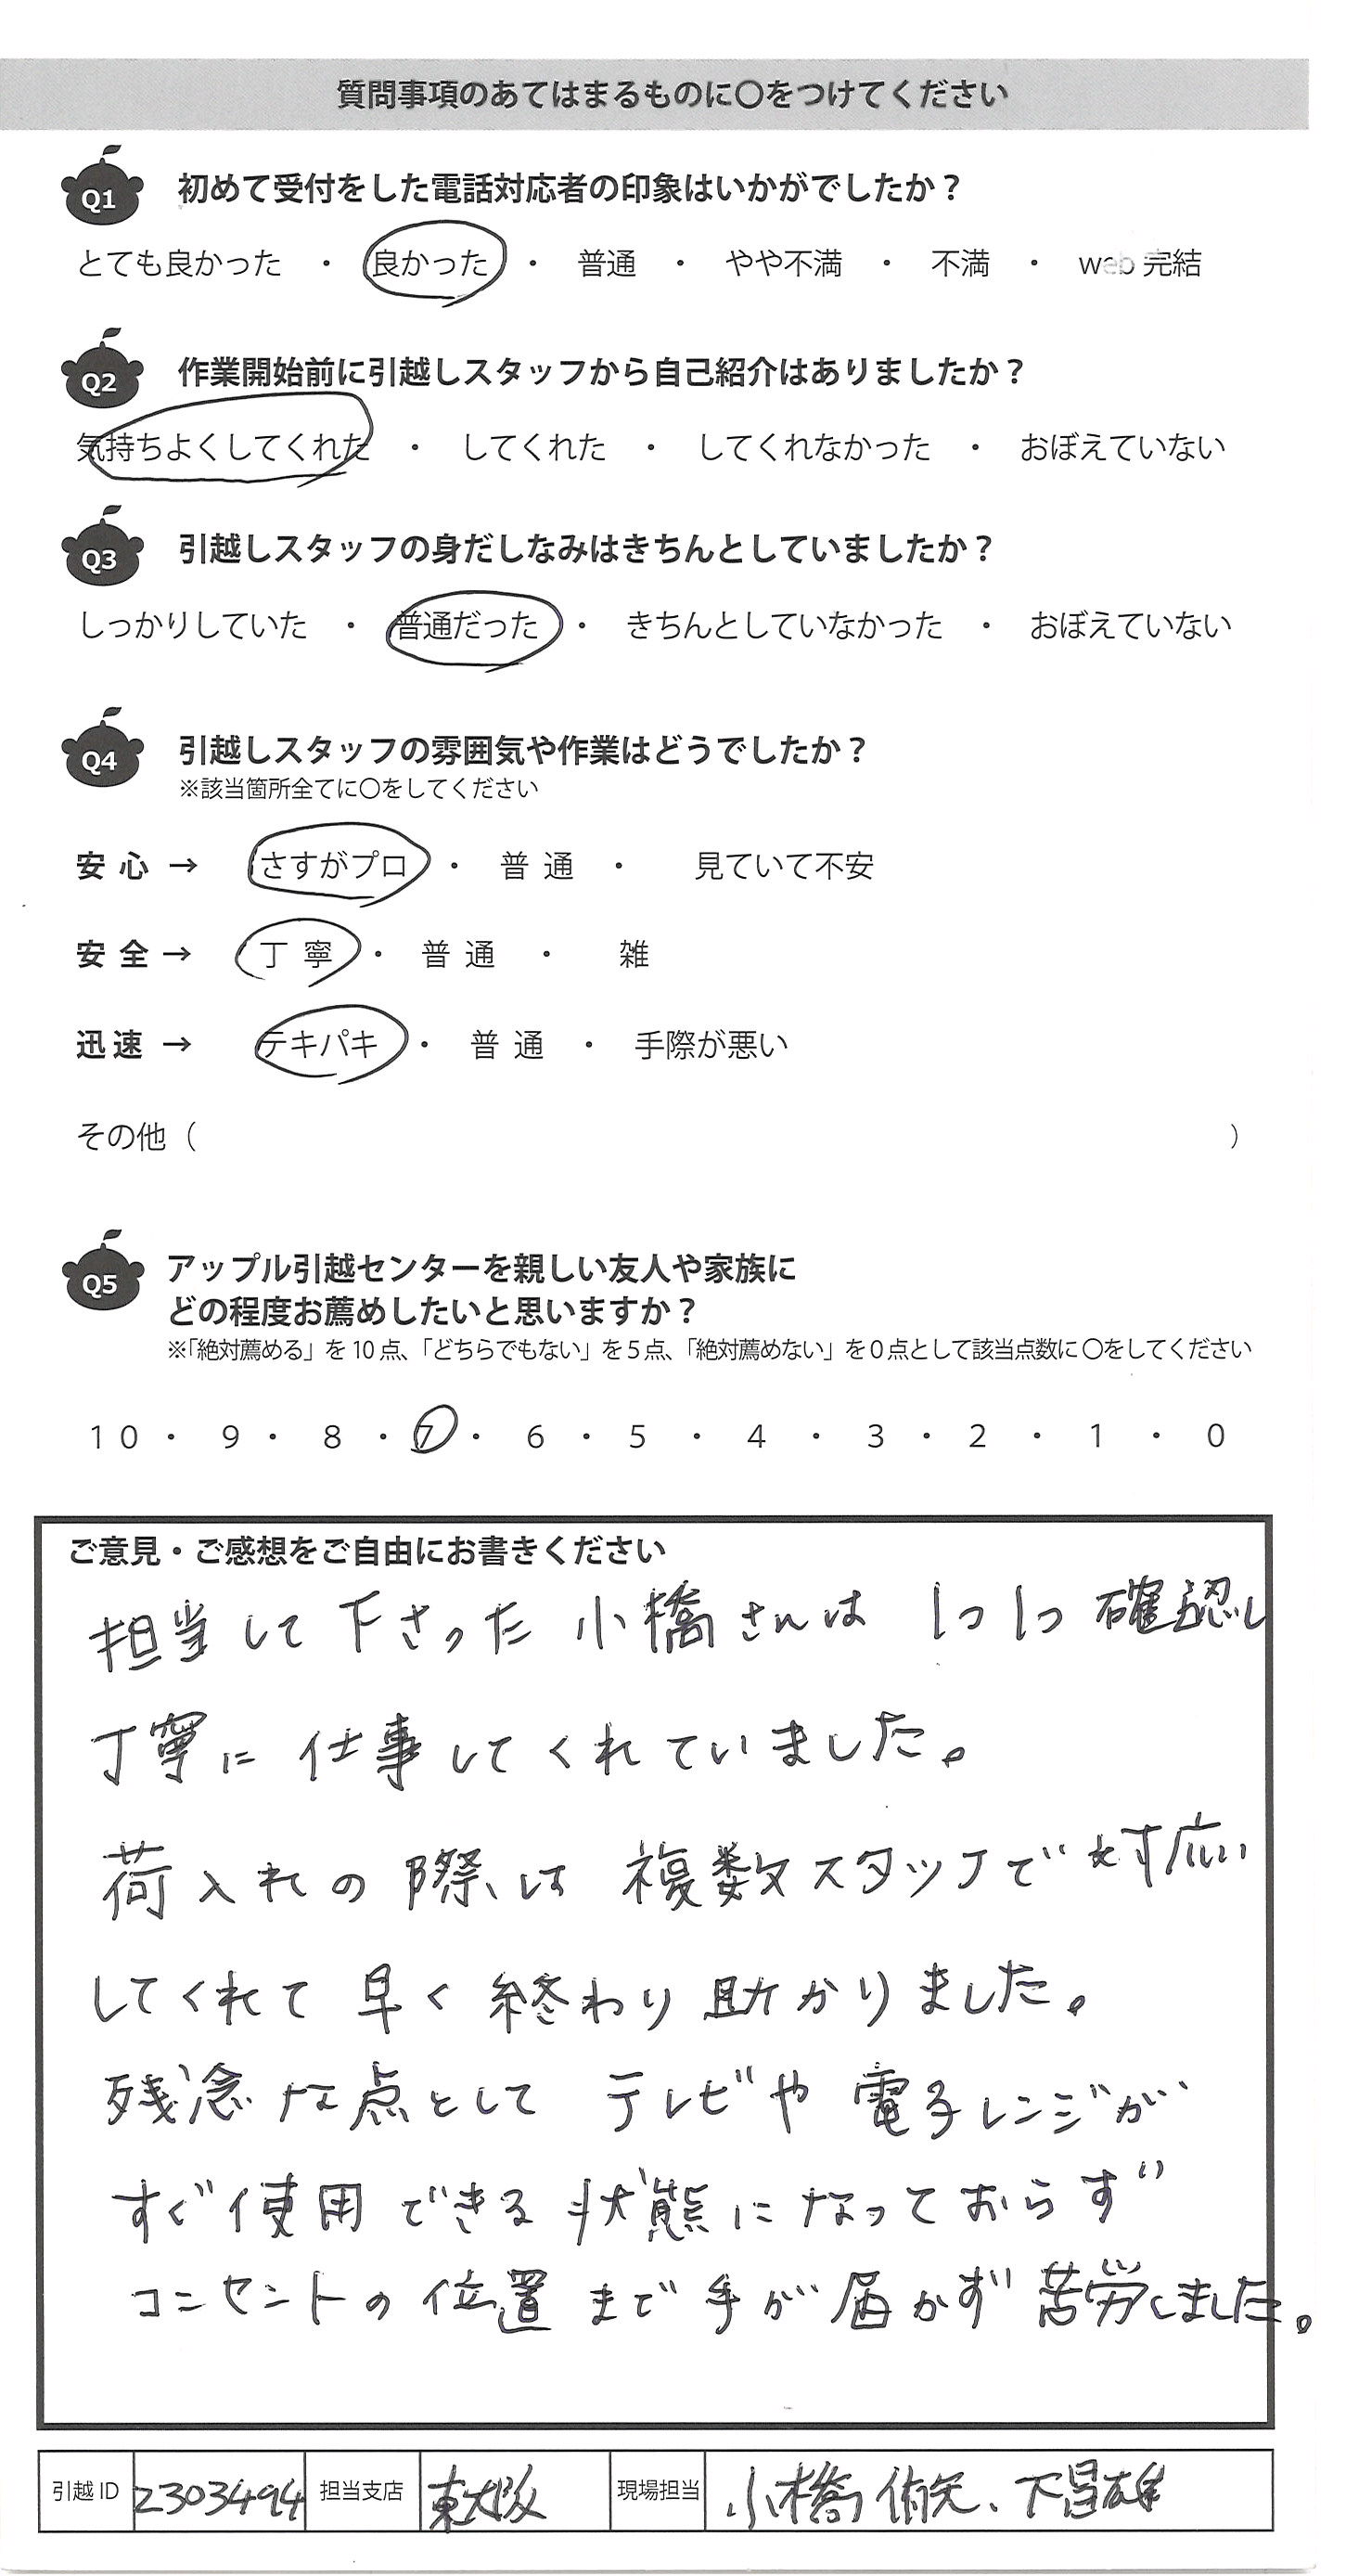 質問事項のあてはまるものに〇をつけてください
Q1 初めて受付をした電話対応者の印象はいかがでしたか？
とても良かった ・ 良かった ・ 普通 ・ やや不満 ・ 不満 ・ web 完結
Q2 作業開始前に引越しスタッフから自己紹介はありましたか？
気持ちよくしてくれた ・ してくれた ・ してくれなかった ・ おぼえていない
Q3 引越しスタッフの身だしなみはきちんとしていましたか？
しっかりしていた ・ 普通だった ・ きちんとしていなかった ・ おぼえていない
Q4 引越しスタッフの雰囲気や作業はどうでしたか？
※該当箇所全てに〇をしてください
安心 → さすがプロ ・ 普通 ・ 見ていて不安
安全 → 丁寧 ・ 普通 ・ 雑
迅速 → テキパキ ・ 普通 ・ 手際が悪い
その他（ ）
Q5 アップル引越センターを親しい友人や家族に
どの程度お薦めしたいと思いますか？
※「絶対薦める」を 10 点、「どちらでもない」を 5 点、「絶対薦めない」を 0 点として該当点数に 〇をしてください
10 ・ 9 ・ 8 ・ 7 ・ 6 ・ 5 ・ 4 ・ 3 ・ 2 ・ 1 ・ 0
ご意見・ご感想をご自由にお書きください
担当して下さった 小橋さんは 1つ1つ 確認し
丁寧に 仕事してくれていました。
荷入れの際は 複数スタッフで対応い
してくれて 早く終わり助かりました。
残念な点として テレビや電子レンジが
すぐ使用できる状態になっておらず
コンセントの位置まで手が届かず苦労しました。
引越 ID 2303494 担当支店 東大阪 現場担当 小橋